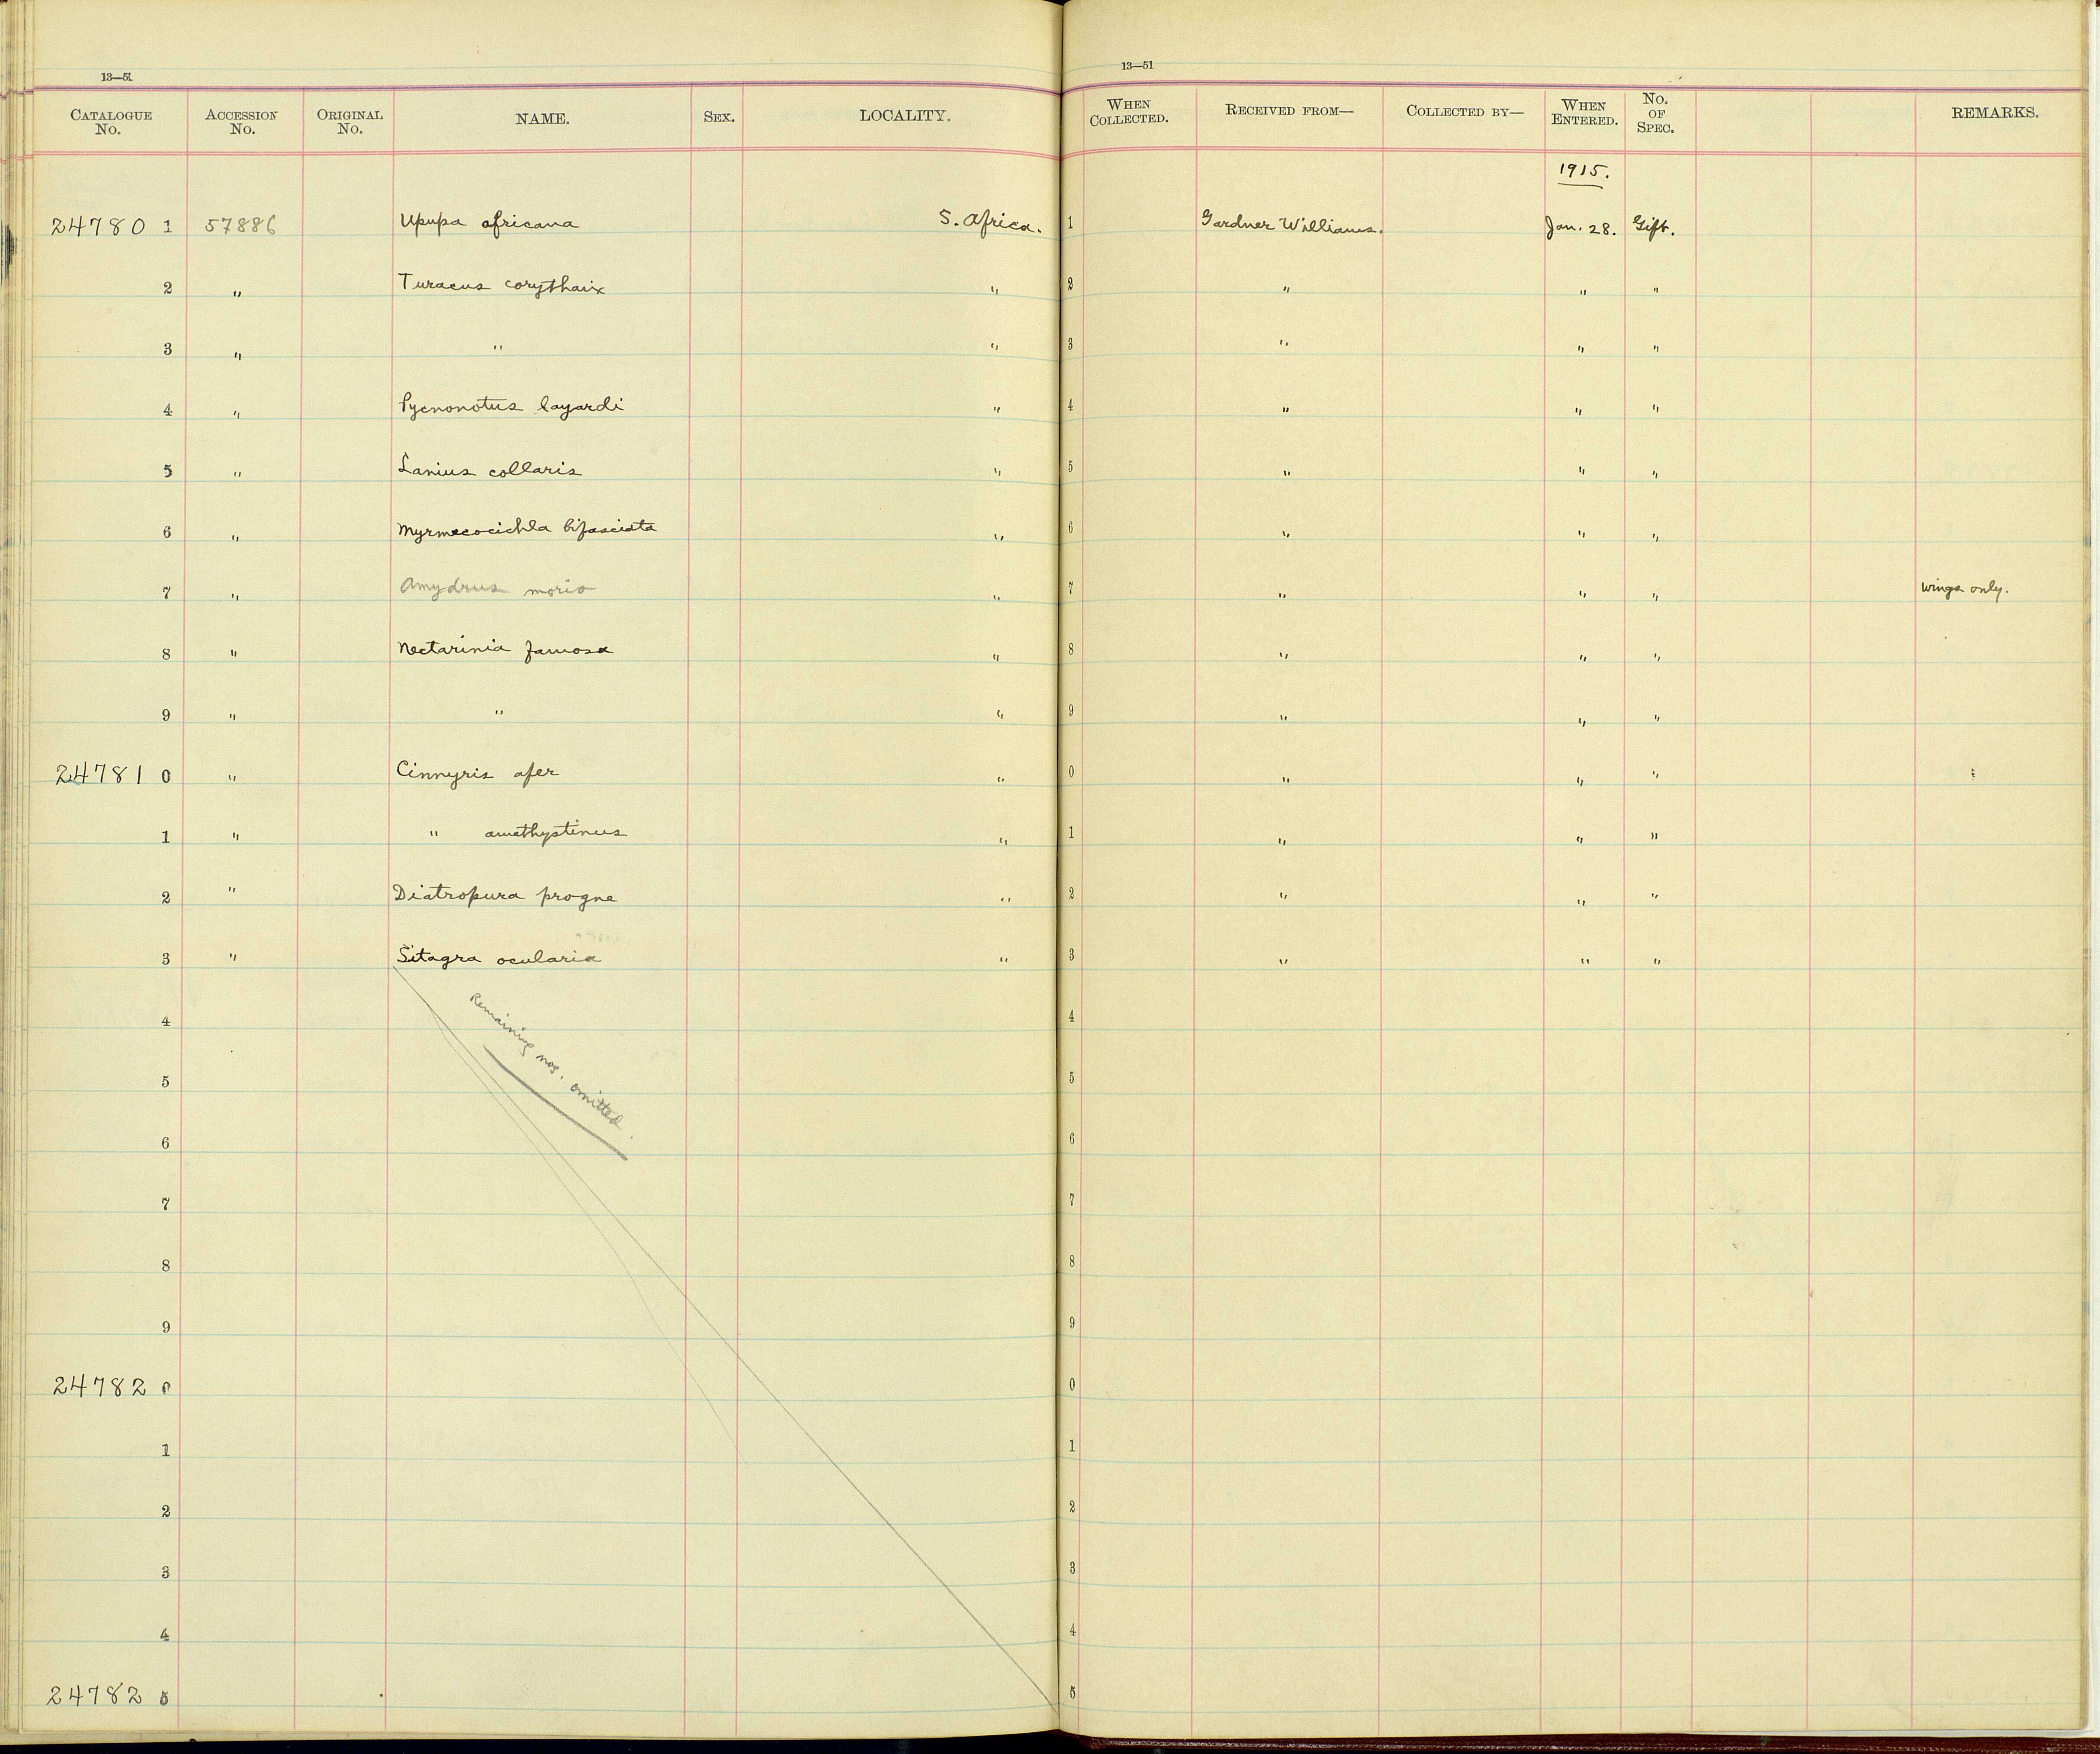 13—51 13—51
CATALOGUE No. ACCESSION No. ORIGINAL No. NAME. SEX. LOCALITY. WHEN COLLECTED. RECEIVED FROM— COLLECTED BY— WHEN ENTERED. No. OF SPEC. REMARKS.
1915.
24780 1 57886 Upupa africana S. Africa. 1 Gardner Williams. Jan. 28. Gift.
2 " Turacus corythaix " 2 " " "
3 " " " 3 " " "
4 " Pycnonotus layardi " 4 " " "
5 " Lanius collaris " 5 " " "
6 " Myrmecocichla bifasciata " 6 " " "
7 " Amydrus morio " 7 " " " wings only.
8 " Nectarinia famosa " 8 " " "
9 " " " 9 " " "
24781 0 " Cinnyris afer " 0 " " "
1 " " amethystinus " 1 " " "
2 " Diatropura progne " 2 " " "
3 " Sitagra ocularia " 3 " " "
Remaining nos. omitted.
4 4
5 5
6 6
7 7
8 8
9 9
24782 0 0
1 1
2 2
3 3
4 4
24782 5 5